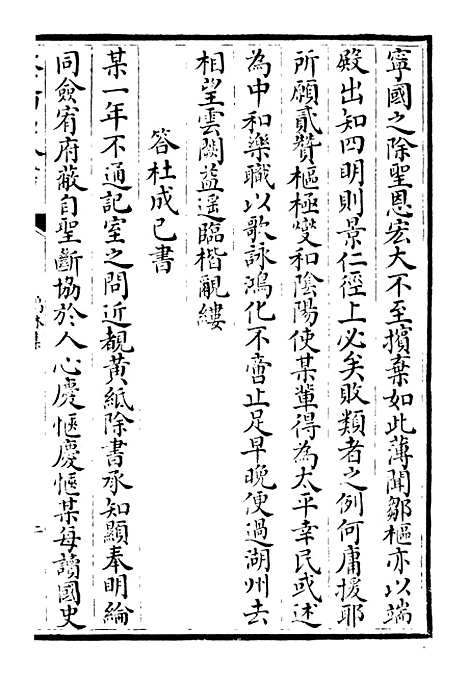 寧國之除聖恩宏大不至擯棄如此薄聞鄒樞亦以端
殿出知四明則景仁徑上必矣敗類者之例何庸援耶
所願貳贊樞極變和陰陽使某輩得為太平幸民或述
為中和樂職以歌詠鴻化不啻止足早晚便過湖州去
相望雲闕益遥臨楮覼縷
答杜成已書
某一年不通記室之問近覩黄紙除書承知顯奉明綸
同僉宥府蔽自聖斷協於人心慶愜慶愜某每讀國史